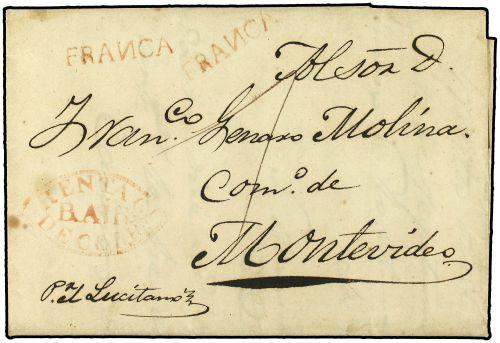 FRANCA
FRANCA
Al Sōr D.
Fran.co Genaro Molina.
Com.o de
Montevideo
RENTA
BAIR
DE CORR
P.r El Lucitano